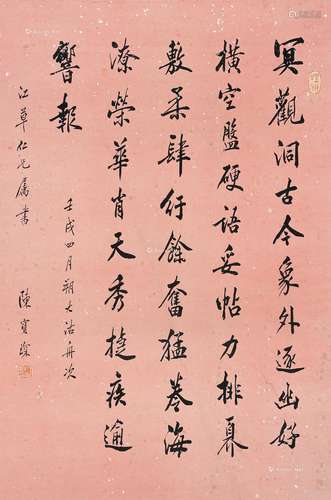 冥觀洞古今象外逐幽好
橫空盤硬語妥帖力排奡
敷柔肆紆餘奮猛卷海
潦榮華肖天秀捷疾逾
響報
壬戌四月朔大沽舟次
仁兄屬書
陳寶琛